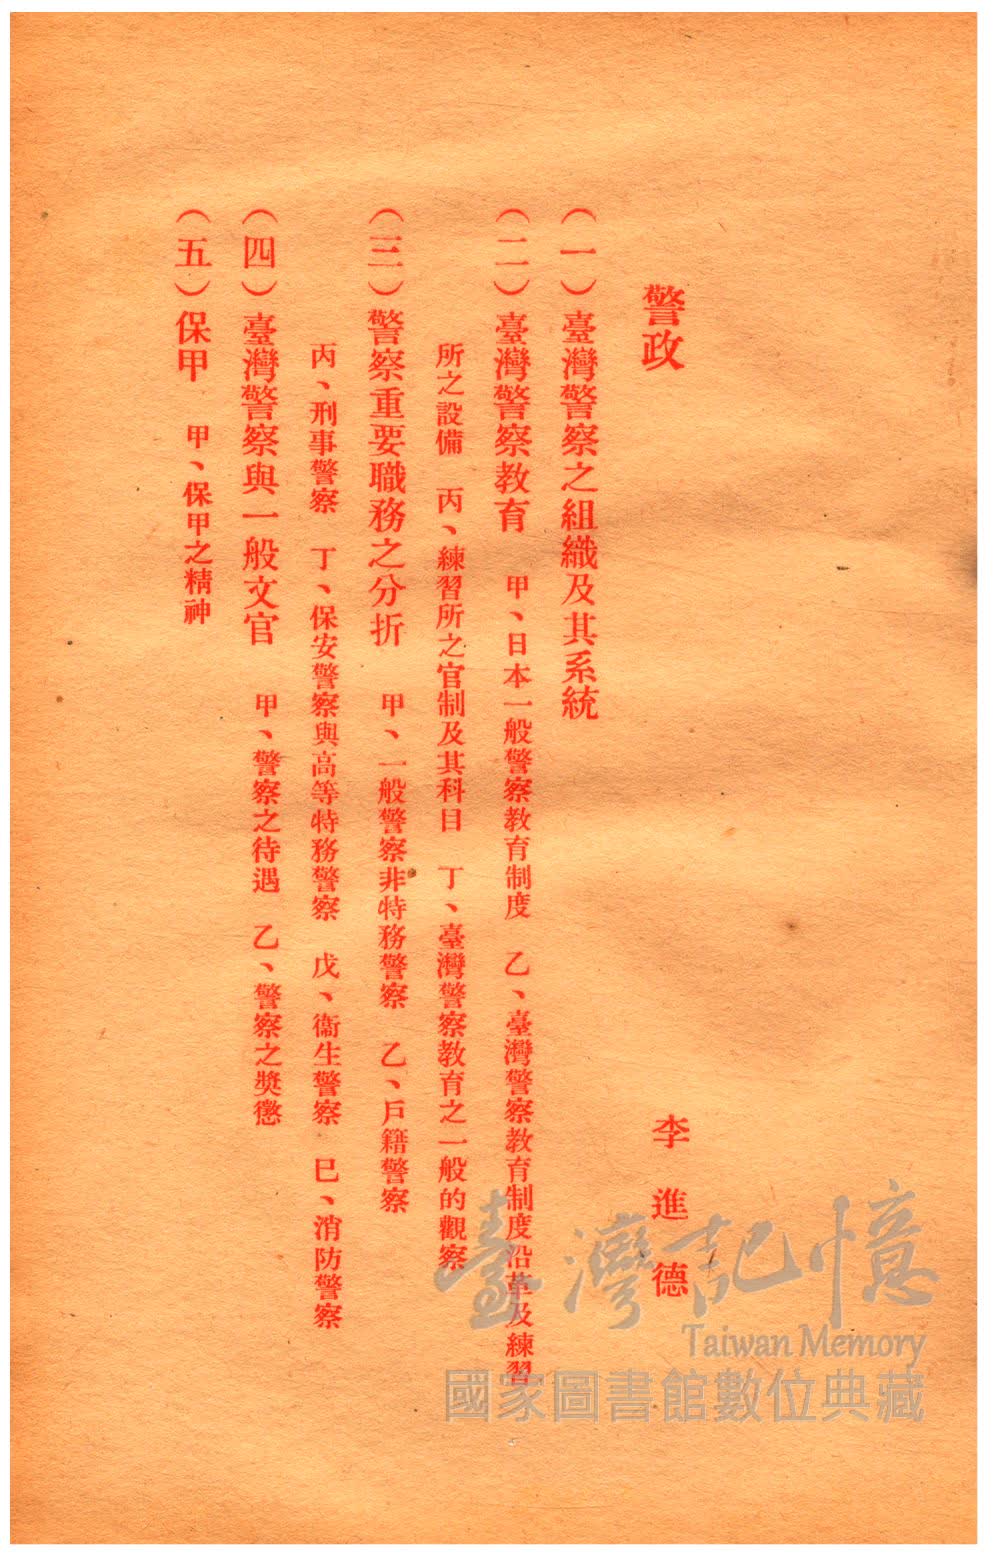 警政
李進德
（一）臺灣警察之組織及其系統
（二）臺灣警察教育　甲、日本一般警察教育制度　乙、臺灣警察教育制度沿革及練習
所之設備　丙、練習所之官制及其科目　丁、臺灣警察教育之一般的觀察
（三）警察重要職務之分折　甲、一般警察非特務警察　乙、戶籍警察
丙、刑事警察　丁、保安警察與高等特務警察　戊、衞生警察　巳、消防警察
（四）臺灣警察與一般文官　甲、警察之待遇　乙、警察之獎懲
（五）保甲　甲、保甲之精神
臺灣記憶
Taiwan Memory
國家圖書館數位典藏